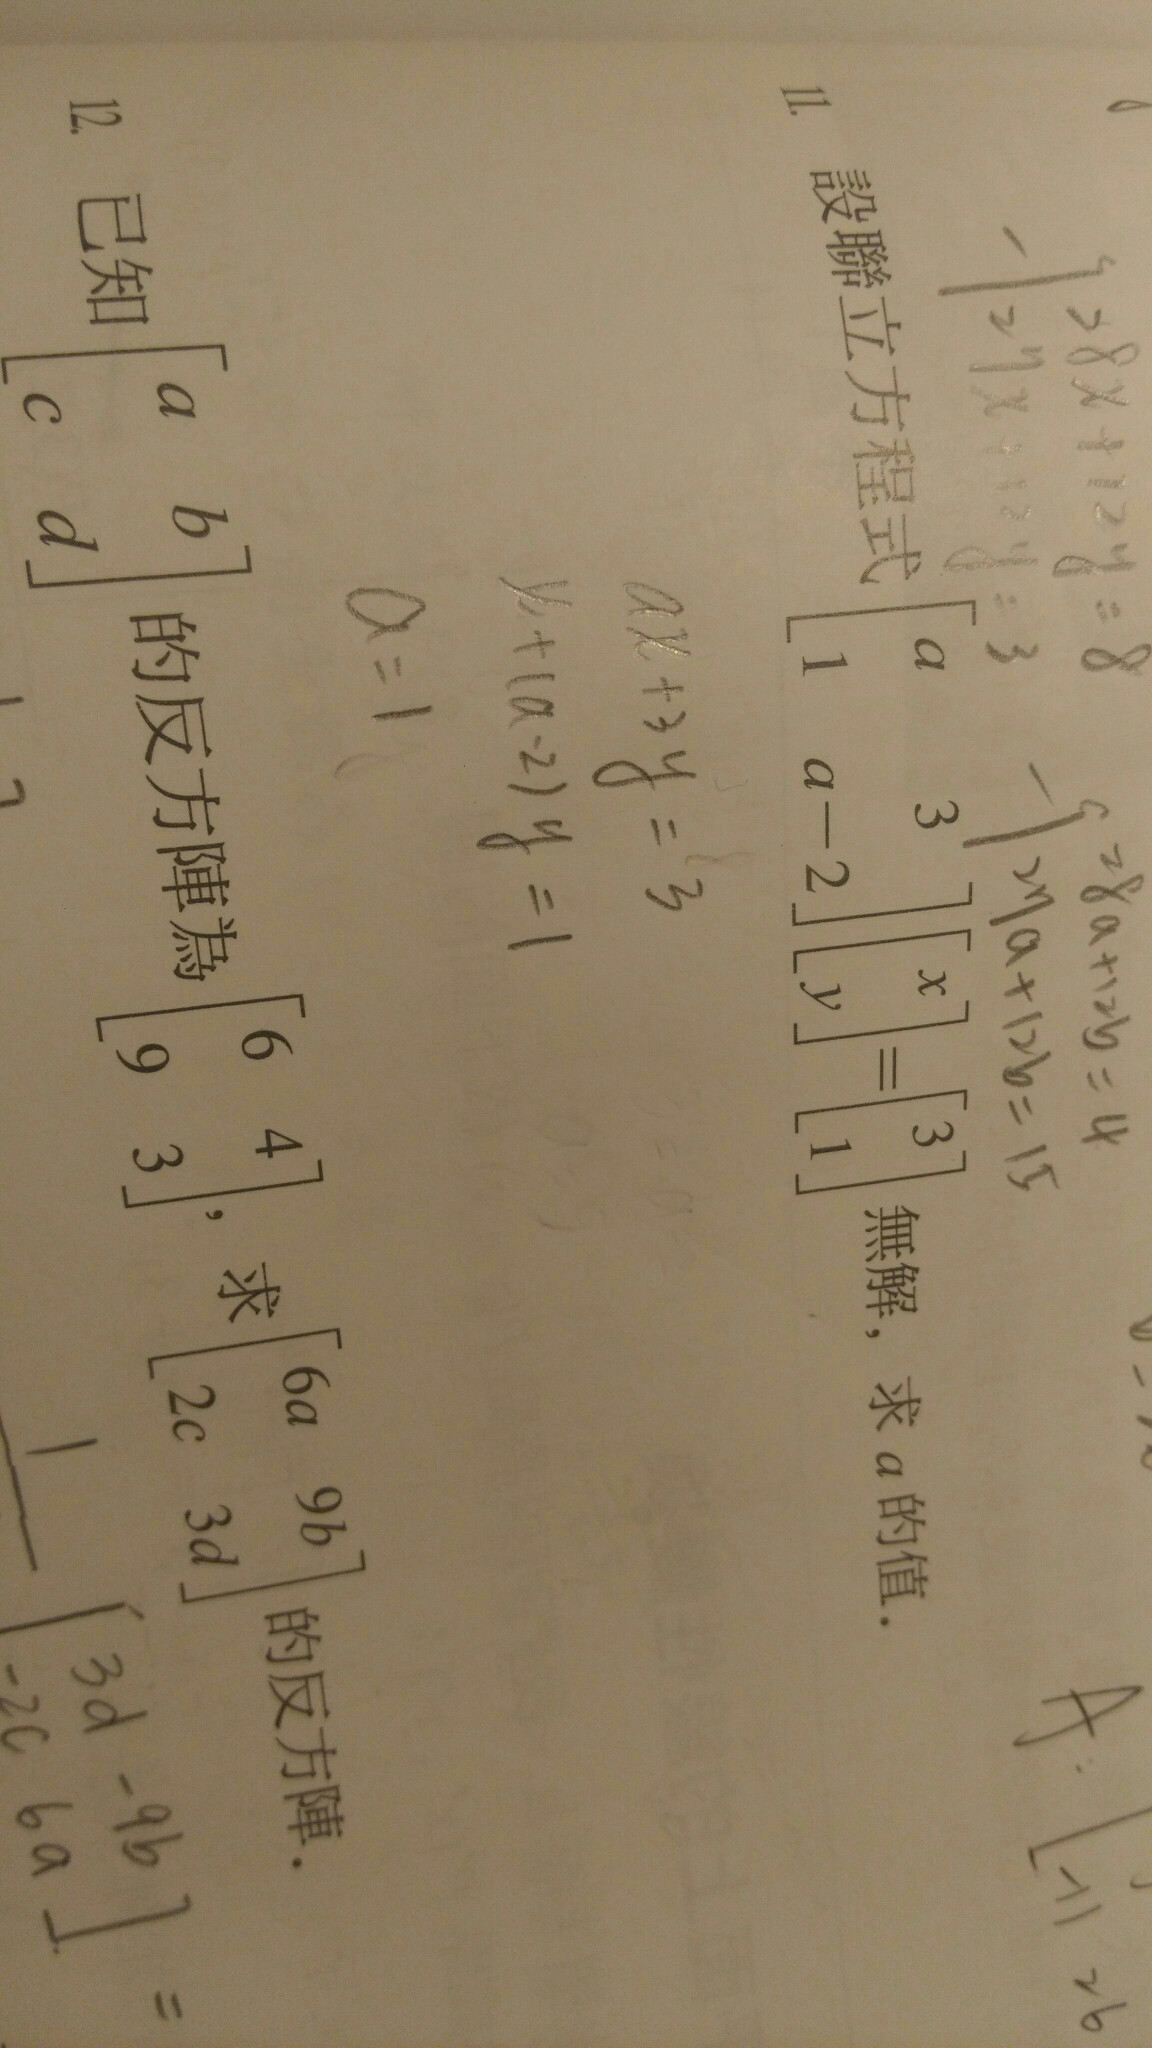 28x+12y=8
27x+12y=3
28a+12b=4
27a+12b=15
A=
11 26
11. 設聯立方程式 [a 3 1 a−2] [x y] = [3 1] 無解，求 a 的值．
ax+3y=3
x+(a-2)y=1
a=1
12. 已知 [a b c d] 的反方陣為 [6 4 9 3]，求 [6a 9b 2c 3d] 的反方陣．
1
[3d -9b -2c 6a] =